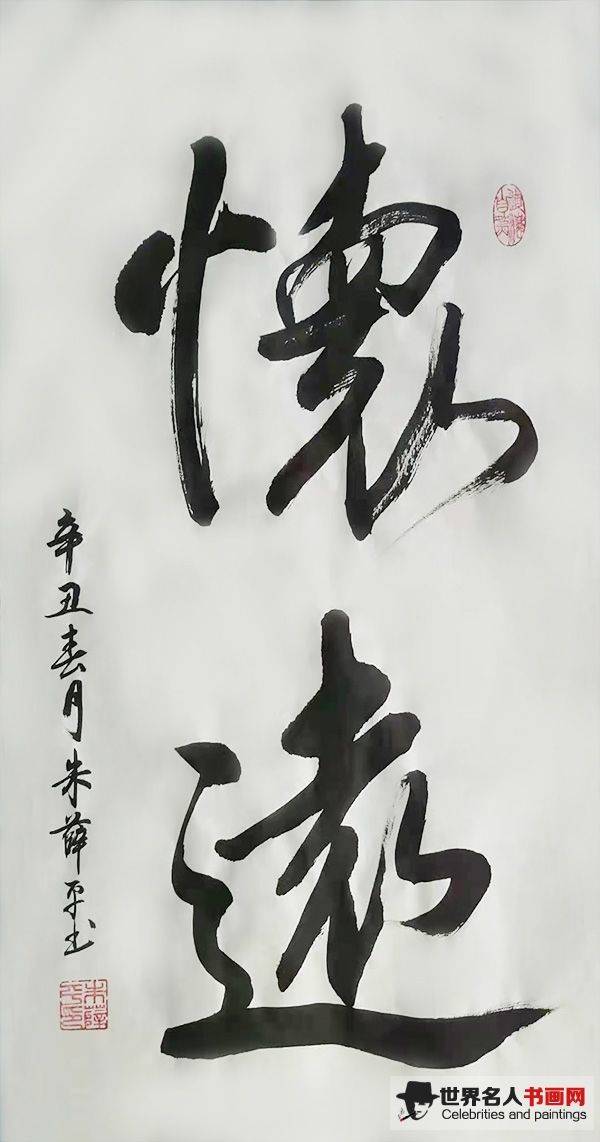 懷遠
辛丑春月朱薛平书
朱薛平印
世界名人书画网
Celebrities and paintings